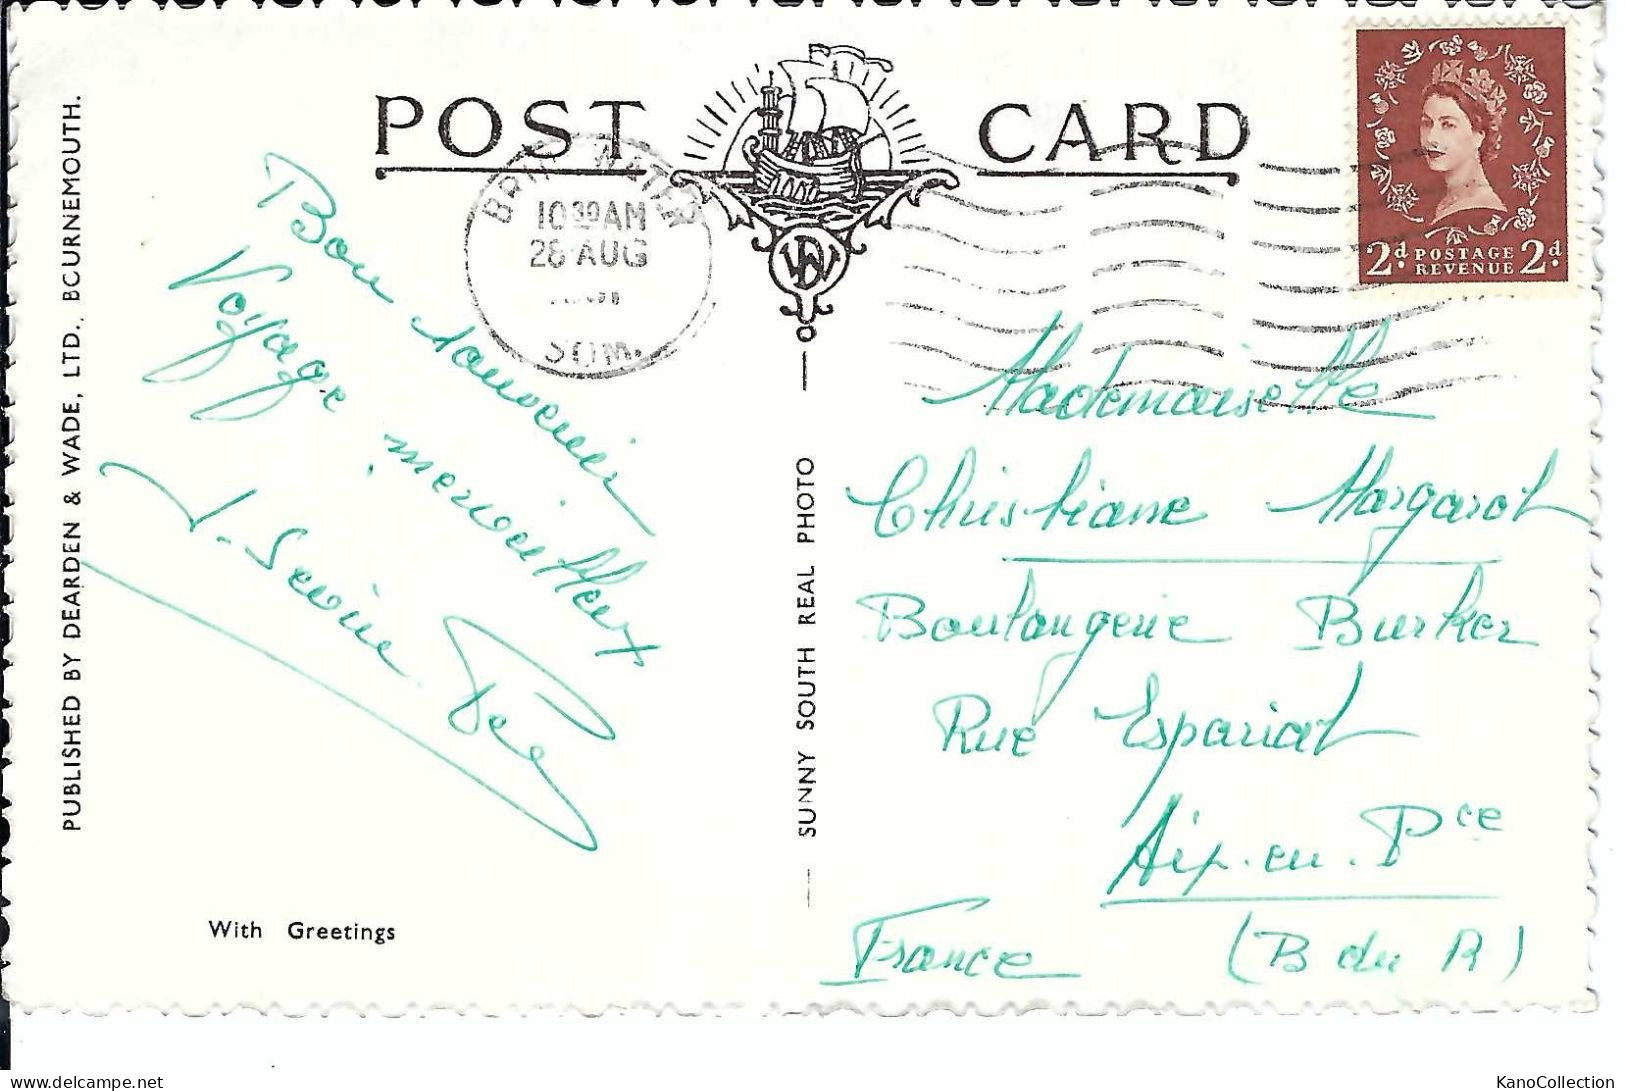 POST CARD
10 30 AM
28 AUG
SOM.
2d. POSTAGE REVENUE 2d.
PUBLISHED BY DEARDEN & WADE, LTD., BOURNEMOUTH.
Bon souvenir
Voyage merveilleux
J. Sevine
With Greetings
SUNNY SOUTH REAL PHOTO
Mademoiselle
Christiane Margarot
Boulangerie Burker
Rue Espariat
Aix. en. Pce
France (B du R)
delcampe.net
KanoCollection